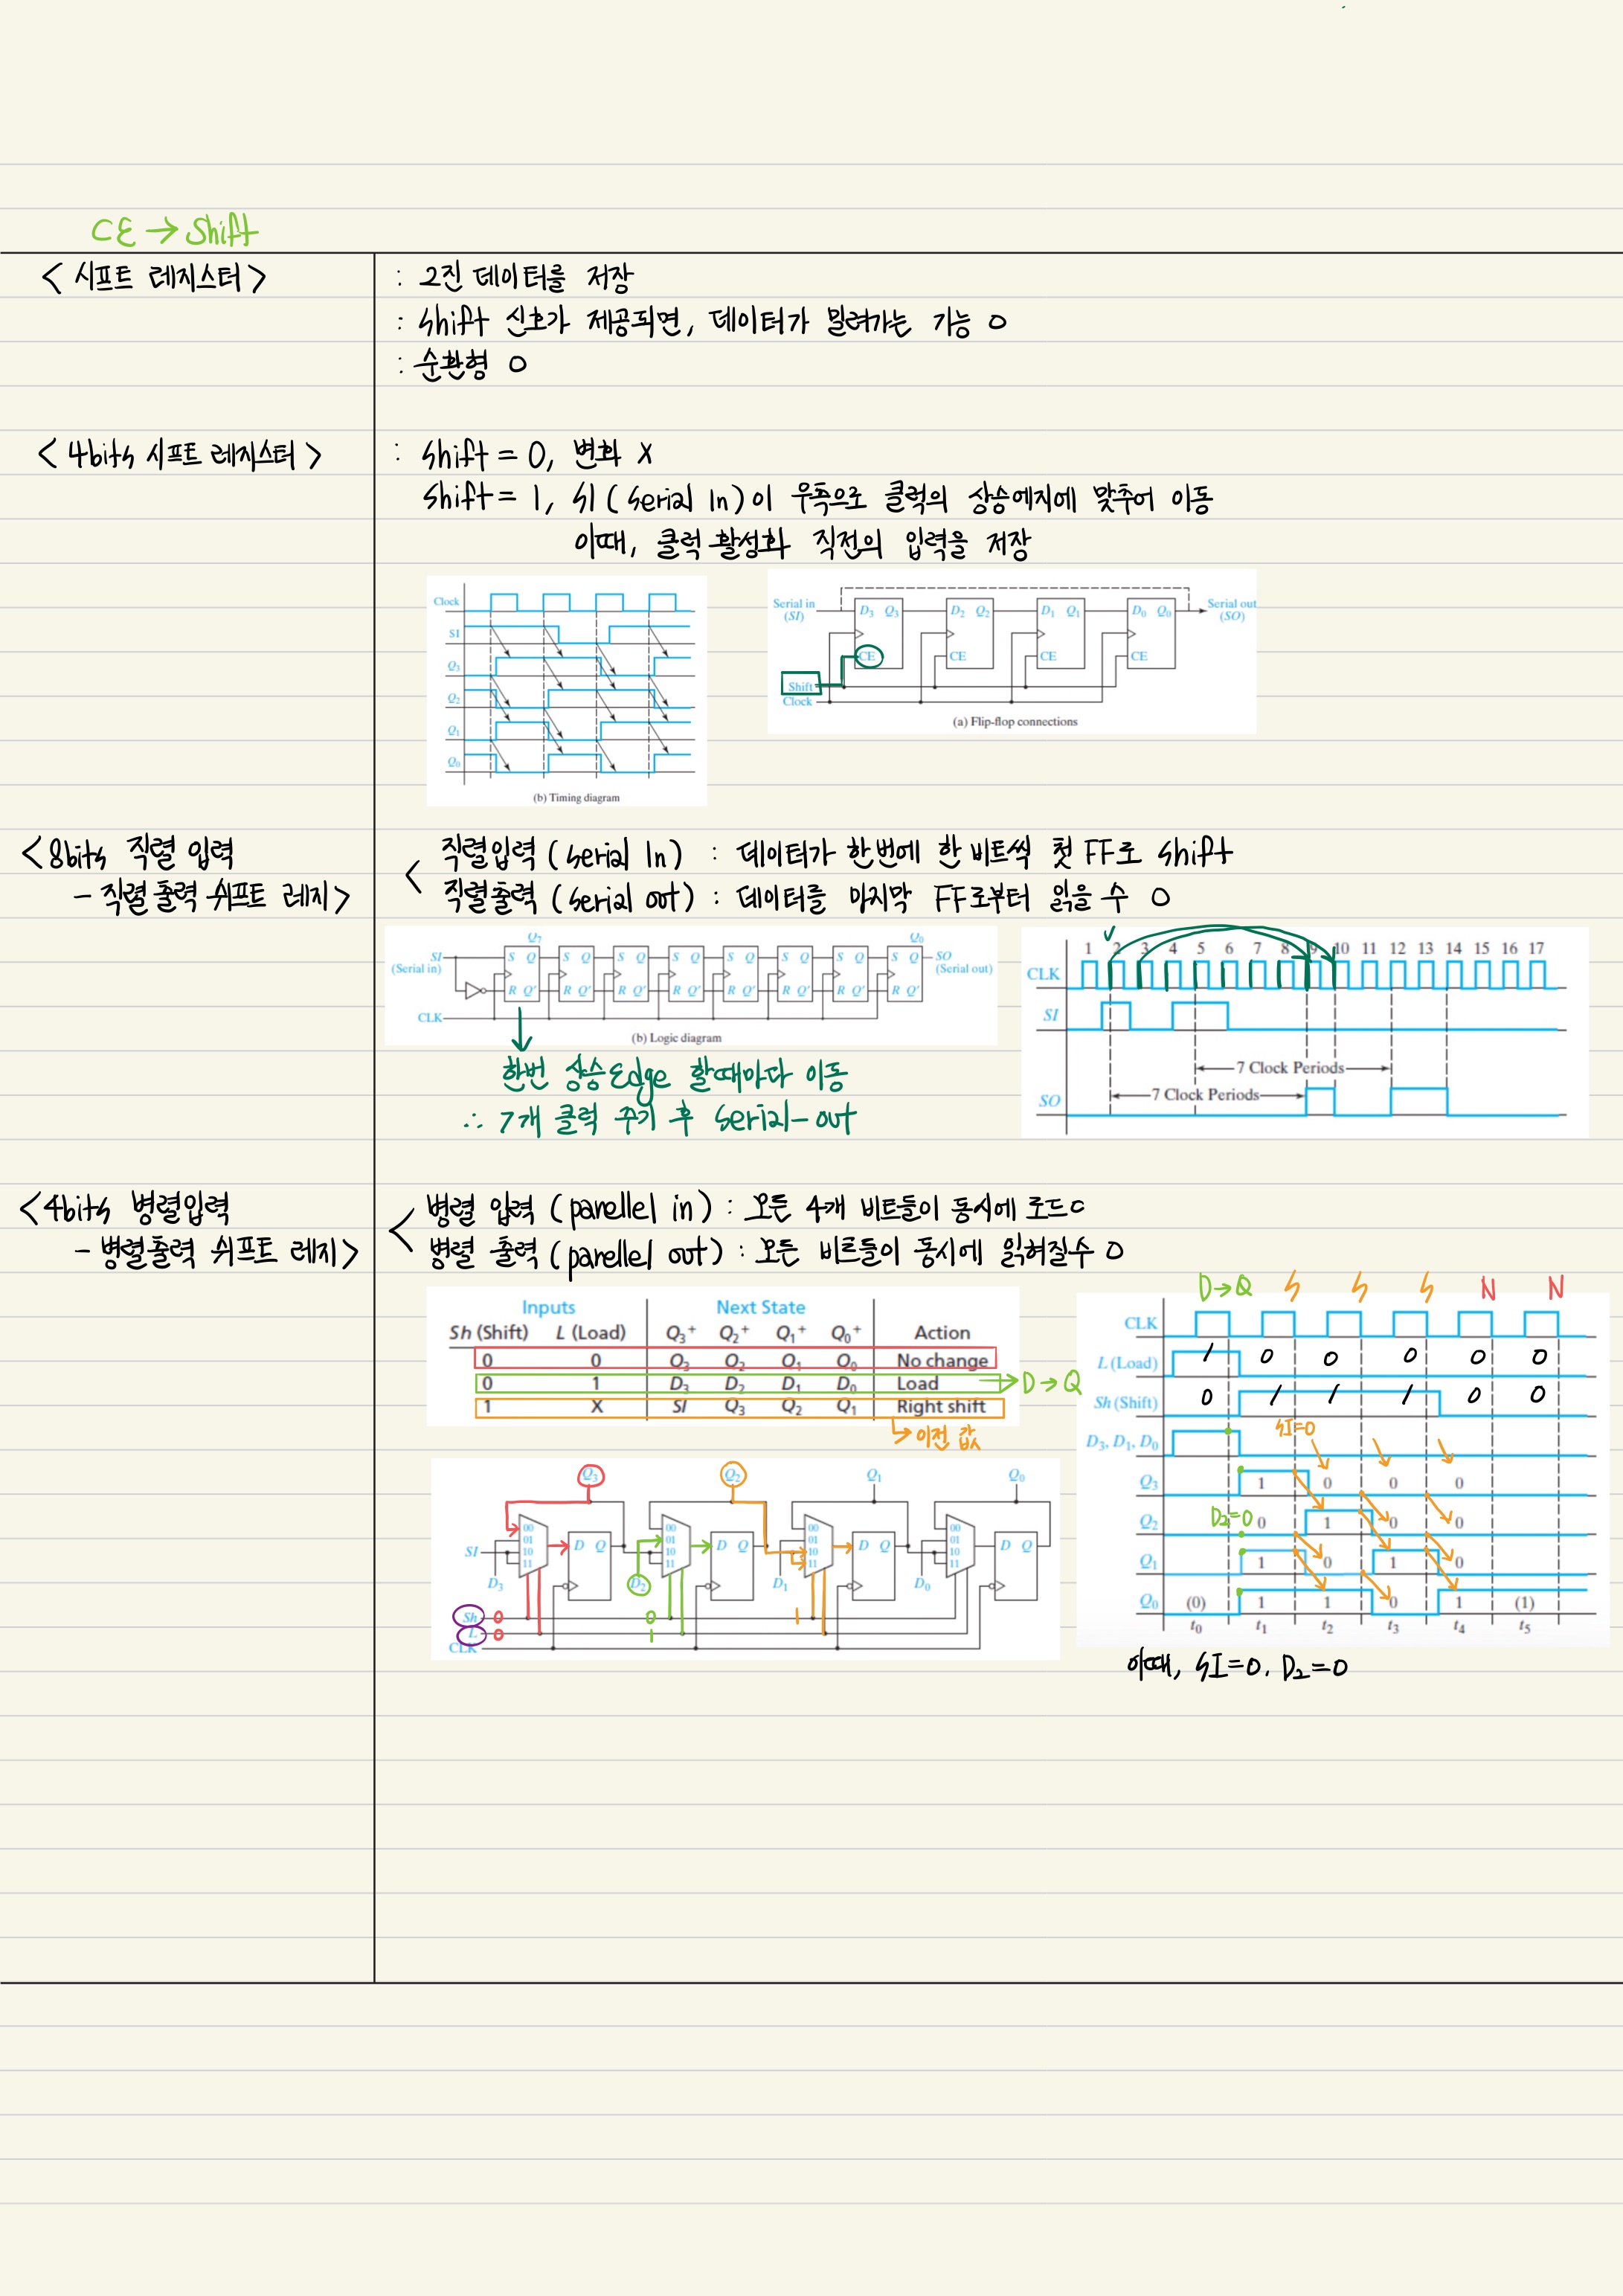 CE → Shift
< 시프트 레지스터 >
: 2진 데이터를 저장
: shift 신호가 제공되면, 데이터가 밀려가는 기능 O
: 순환형 O
< 4bits 시프트 레지스터 >
: shift = 0, 변화 X
shift = 1, SI ( serial In ) 이 우측으로 클럭의 상승에지에 맞추어 이동
이때, 클럭 활성화 직전의 입력을 저장
Clock
SI
Q3
Q2
Q1
Q0
(b) Timing diagram
Serial in (SI)
D3 Q3 D2 Q2 D1 Q1 D0 Q0
Serial out (SO)
CE CE CE CE
Shift
Clock
(a) Flip-flop connections
< 8bits 직렬 입력
- 직렬 출력 쉬프트 레지 >
< 직렬입력 ( serial In ) : 데이터가 한번에 한 비트씩 첫 FF로 shift
직렬출력 ( serial out ) : 데이터를 마지막 FF로부터 읽을 수 O
Q7 Q0
SI (Serial in)
S Q S Q S Q S Q S Q S Q S Q S Q
SO (Serial out)
R Q' R Q' R Q' R Q' R Q' R Q' R Q' R Q'
CLK
(b) Logic diagram
한번 상승 Edge 할때마다 이동
∴ 7개 클럭 주기 후 serial-out
1 2 3 4 5 6 7 8 9 10 11 12 13 14 15 16 17
CLK
SI
7 Clock Periods
7 Clock Periods
SO
< 4bits 병렬입력
- 병렬출력 쉬프트 레지 >
< 병렬 입력 ( parellel in ) : 모든 4개 비트들이 동시에 로드 O
병렬 출력 ( parellel out ) : 모든 비트들이 동시에 읽혀질수 O
Inputs Next State
Sh (Shift) L (Load) Q3+ Q2+ Q1+ Q0+ Action
0 0 Q3 Q2 Q1 Q0 No change
0 1 D3 D2 D1 D0 Load → D → Q
1 X SI Q3 Q2 Q1 Right shift
이전 값
Q3 Q2 Q1 Q0
00 00 00 00
01 01 01 01
10 10 10 10
11 11 11 11
D Q D Q D Q D Q
SI
D3 D2 D1 D0
Sh 0 0 1
L 0 1
CLK
D → Q S S S N N
CLK
L (Load) 1 0 0 0 0 0
Sh (Shift) 0 1 1 1 0 0
SI=0
D3, D1, D0
Q3 1 0 0 0
D2=0
Q2 0 1 0 0
Q1 1 0 1 0
Q0 (0) 1 1 0 1 (1)
t0 t1 t2 t3 t4 t5
이때, SI=0, D2=0